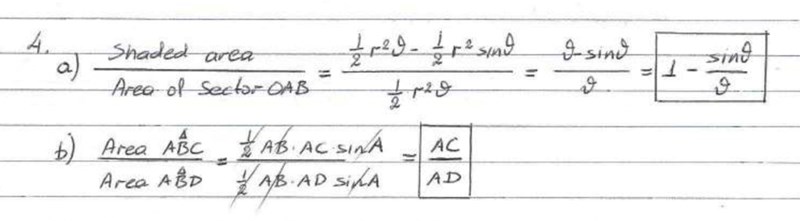 4.
a) Shaded area / Area of Sector OAB = (½ r²θ - ½ r² sinθ) / (½ r²θ) = (θ - sinθ) / θ = 1 - sinθ / θ
b) Area AB̂C / Area AB̂D = (½ AB · AC · sin A) / (½ AB · AD sin A) = AC / AD